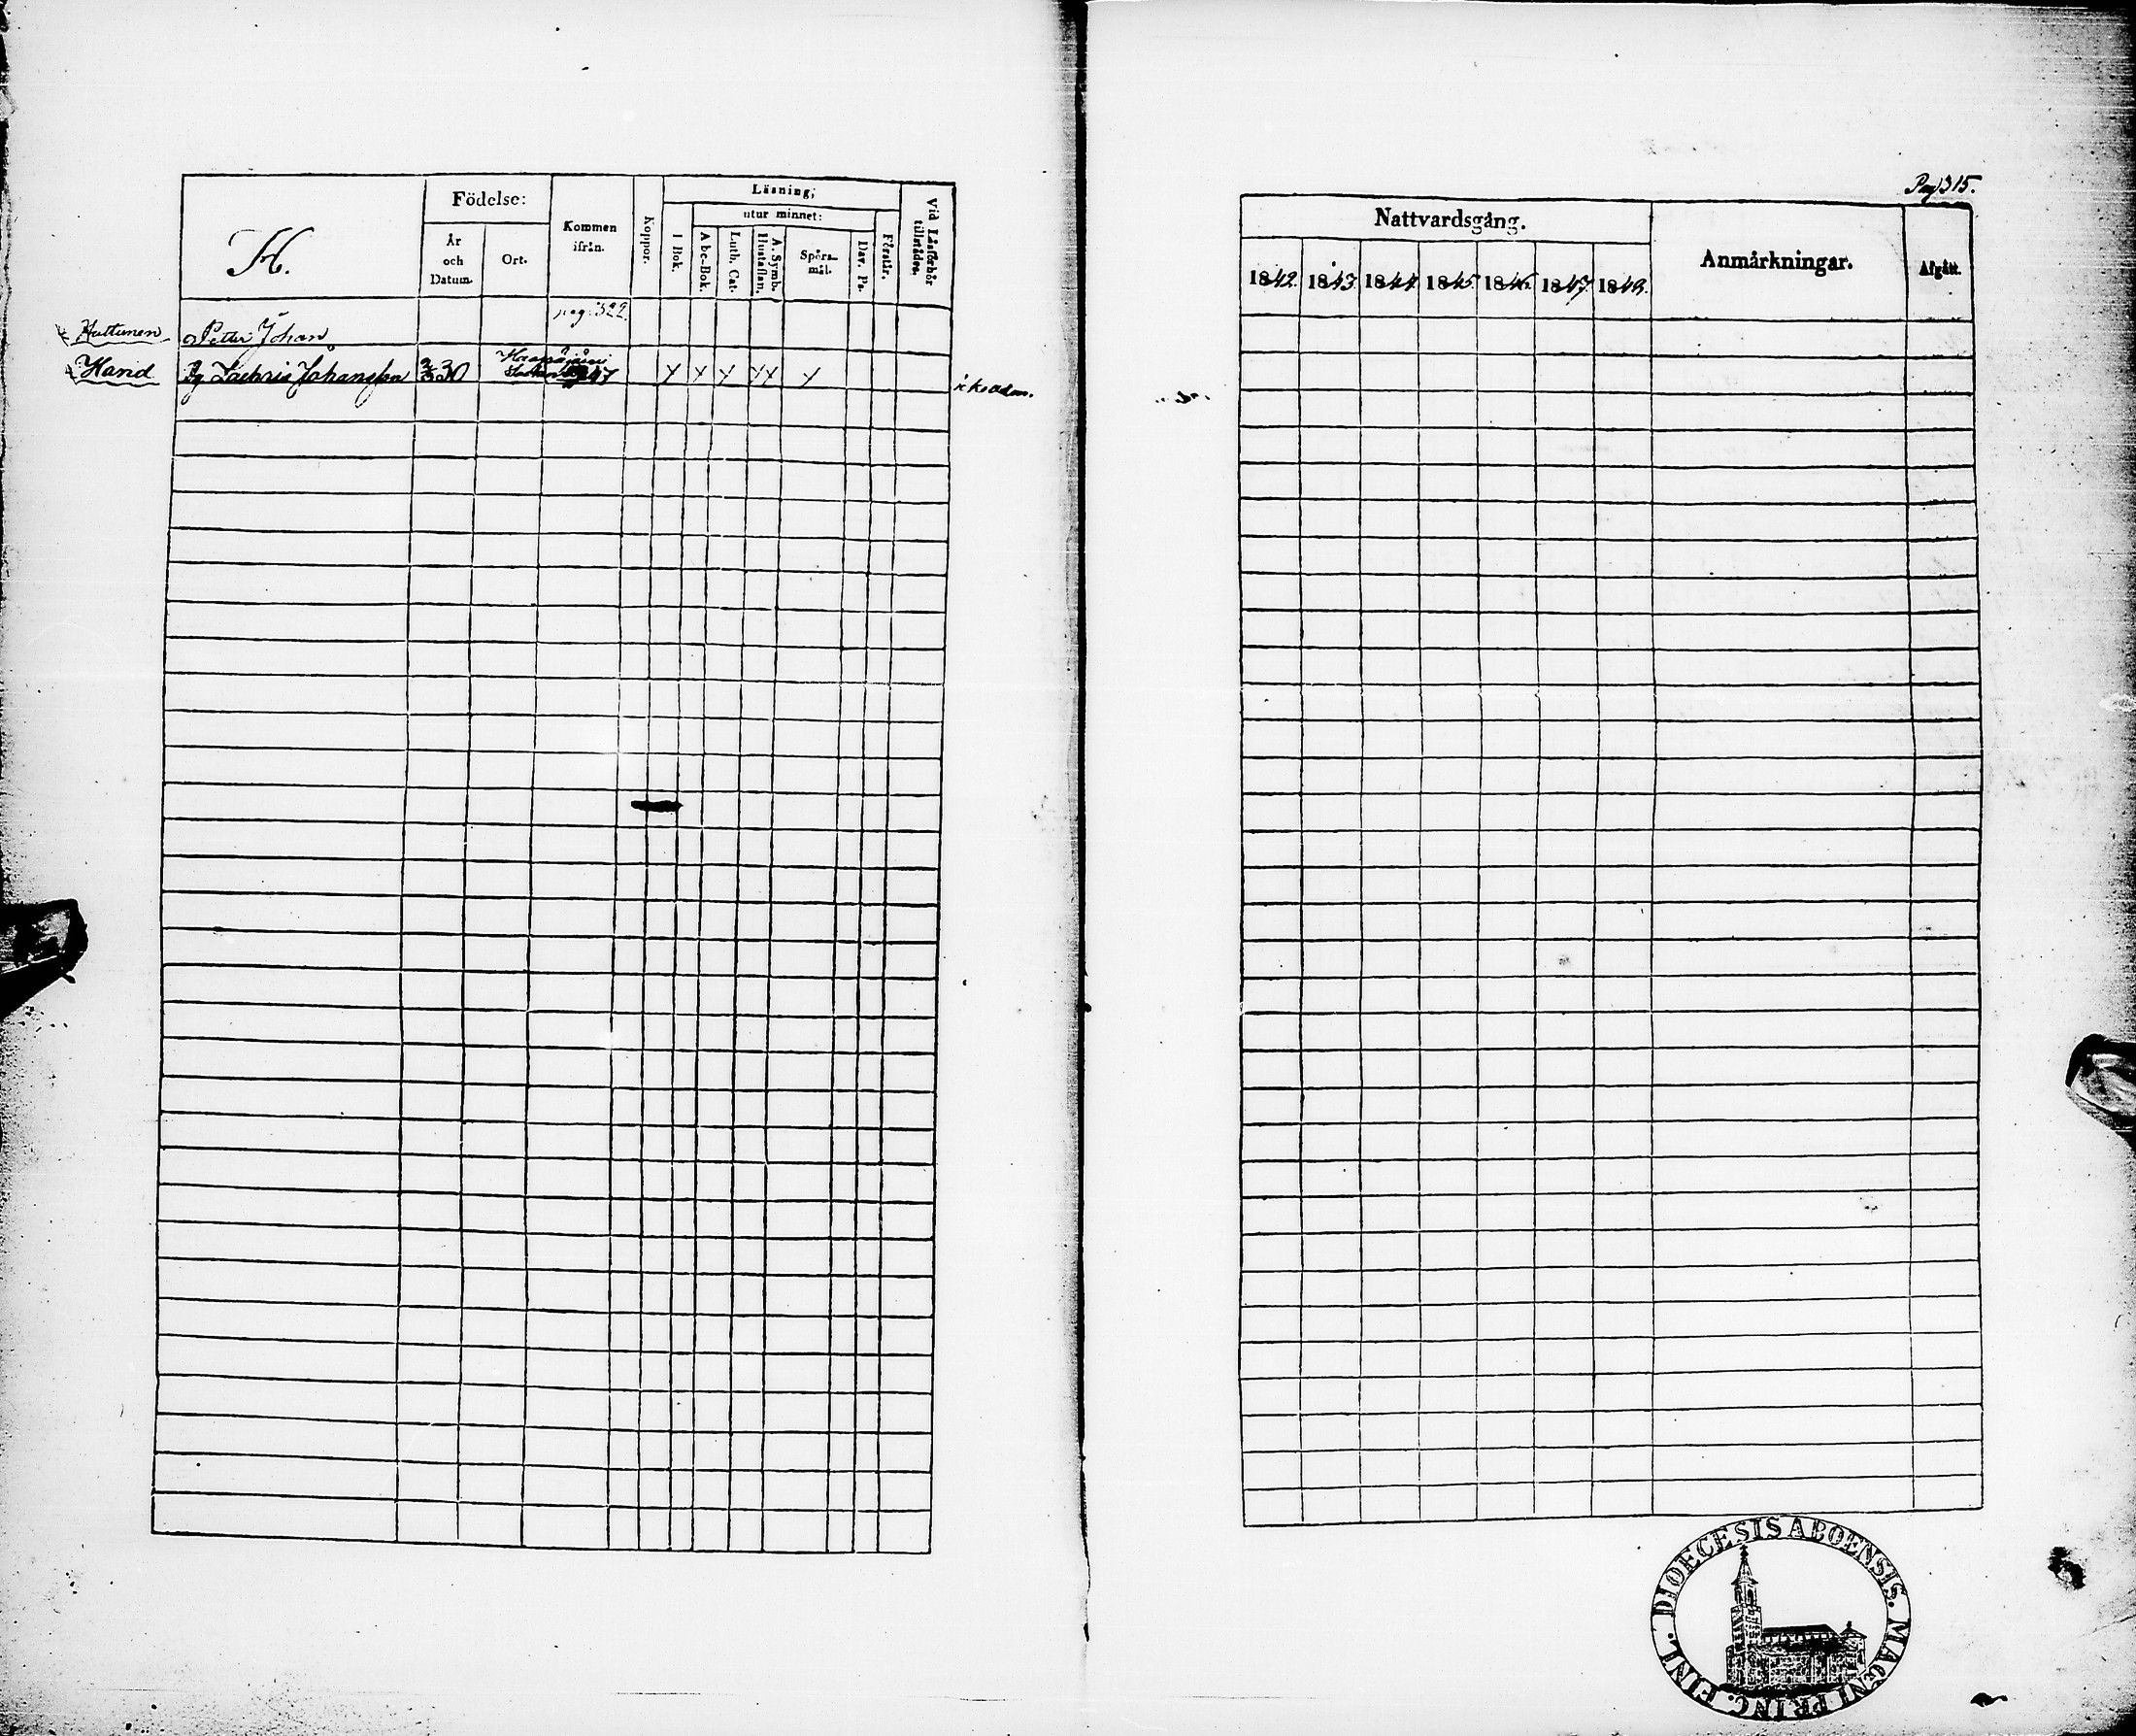 Pag 315.
H.
Födelse:
År och Datum.
Ort.
Kommen ifrån.
Koppor.
Läsning;
I Bok.
utur minnet:
Abc-Bok.
Luth. Cat.
A. Symb. Hustaflan.
Spörs-mål.
Dav. Ps.
Förstår.
Vid Läsförhör tillstädes.
Nattvardsgång.
1842. 1843. 1844 1845. 1846. 1847 1848.
Anmärkningar.
Afgått.
pag. 322.
Huttunen Petter Johan
Harid Zachris Johansson 30 47
DIOECESIS ABOENSIS. MAGNI PRINC. FINL.